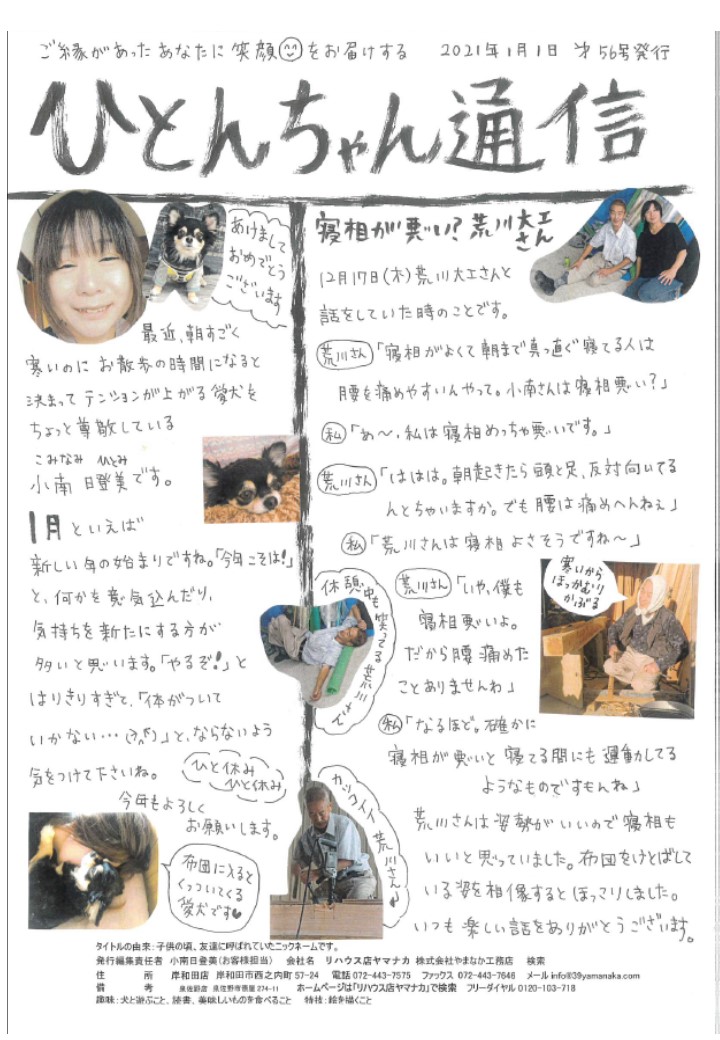 ご縁があったあなたに笑顔をお届けする 2021年1月1日 第56号発行
ひとんちゃん通信
あけまして
おめでとう
ございます
最近、朝すごく
寒いのに お散歩の時間になると
決まって テンションが上がる愛犬を
ちょっと尊敬している
こみなみ ひとみ
小南 日登美です。
1月といえば
新しい年の始まりですね。「今年こそは!」
と、何かを意気込んだり、
気持ちを新たにする方が
多いと思います。「やるぞ!」と
はりきりすぎて、「体がついて
いかない…」と、ならないよう
気をつけて下さいね。
ひと休み
ひと休み
今年もよろしく
お願いします。
布団に入ると
くっついてくる
愛犬です♥
寝相が悪い?荒川大工さん
12月17日(木)荒川大工さんと
話をしていた時のことです。
荒川さん「寝相がよくて朝まで真っ直ぐ寝てる人は
腰を痛めやすいんやって。小南さんは寝相悪い?」
私「あ〜、私は寝相めっちゃ悪いです。」
荒川さん「ははは。朝起きたら頭と足、反対向いてる
んとちゃいますか。でも腰は痛めへんねぇ」
私「荒川さんは寝相よさそうですね〜」
荒川さん「いや、僕も
寝相悪いよ。
だから腰痛めた
ことありませんわ」
私「なるほど。確かに
寝相が悪いと寝てる間にも運動してる
ようなものですもんね」
荒川さんは姿勢がいいので寝相も
いいと思っていました。布団をけとばして
いる姿を想像するとほっこりしました。
いつも楽しい話をありがとうございます。
休憩中も笑ってる荒川さん
寒いから
ほっかむり
かぶる
カックイイ荒川さん♪
タイトルの由来:子供の頃、友達に呼ばれていたニックネームです。
発行編集責任者 小南日登美(お客様担当) 会社名 リハウス店ヤマナカ 株式会社やまなか工務店 検索
住 所 岸和田店 岸和田市西之内町 57-24 電話 072-443-7575 ファックス 072-443-7646 メール info@39yamanaka.com
備 考 泉佐野店 泉佐野市 274-11 ホームページは「リハウス店ヤマナカ」で検索 フリーダイヤル 0120-103-718
趣味:犬と遊ぶこと、読書、美味しいものを食べること 特技:絵を描くこと